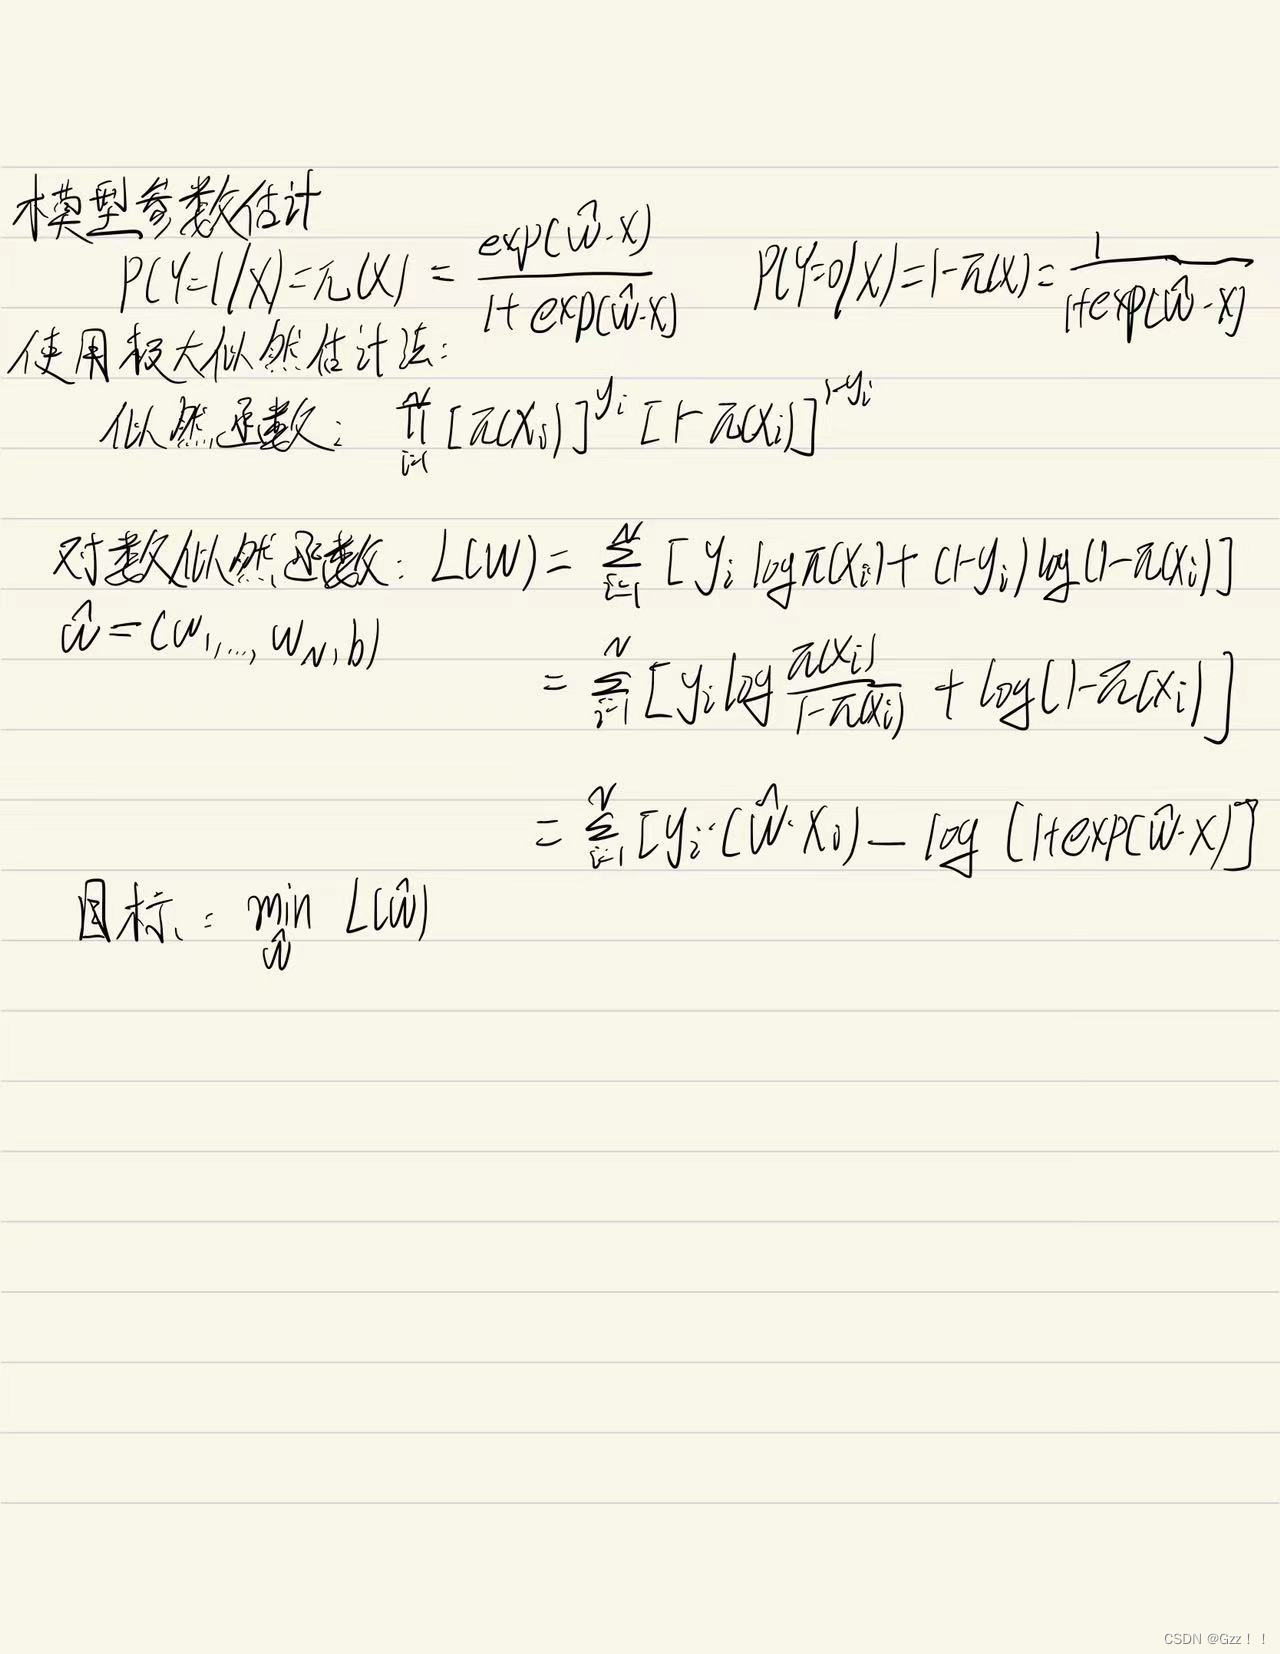 模型参数估计
P(Y=1/X)=π(X) = exp(ŵ·x) / 1+exp(ŵ·x)    P(Y=0/X)=1-π(X)= 1 / 1+exp(ŵ·x)
使用极大似然估计法:
似然函数: ∏_{i=1}^{N} [π(x_i)]^{y_i} [1-π(x_i)]^{1-y_i}
对数似然函数: L(w)= ∑_{i=1}^{N} [y_i log π(x_i)+(1-y_i)log(1-π(x_i)]
ŵ=(w_1,...,w_N,b)
= ∑_{i=1}^{N} [y_i log π(x_i)/1-π(x_i) + log(1-π(x_i)]
= ∑_{i=1}^{N} [y_i·(ŵ·x_i) - log(1+exp(ŵ·x)]
目标: min_ŵ L(ŵ)
CSDN @Gzz！！